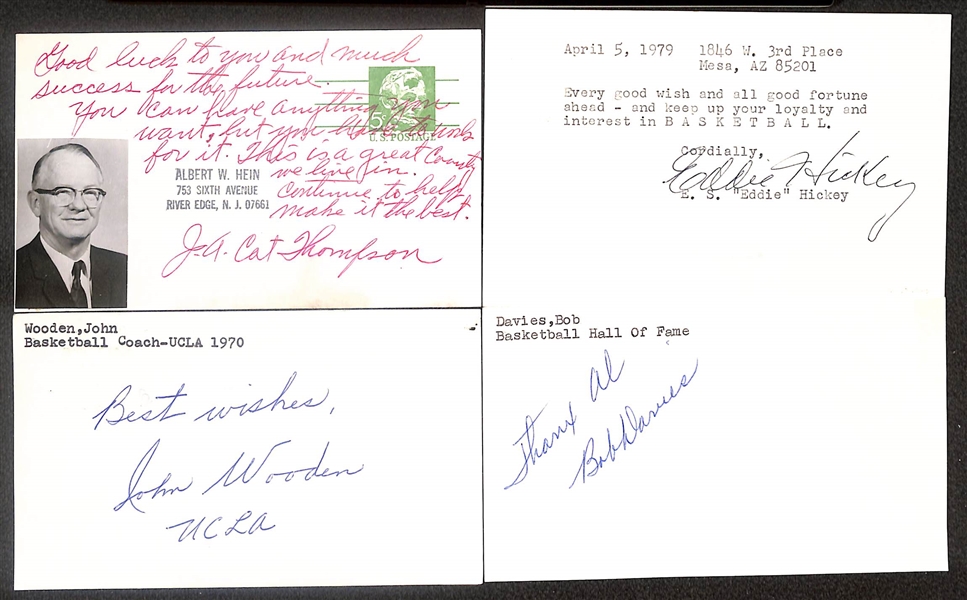 Good luck to you and much
success for the future.
You can have anything you
want, but you have to work
for it. This is a great Country
we live in.
continue to help
make it the best.
J.A. Cat Thompson
5¢
U.S. POSTAGE
ALBERT W. HEIN
753 SIXTH AVENUE
RIVER EDGE, N. J. 07661
April 5, 1979 1846 W. 3rd Place
Mesa, AZ 85201
Every good wish and all good fortune
ahead - and keep up your loyalty and
interest in B A S K E T B A L L.
Cordially,
Eddie Hickey
E. S. "Eddie" Hickey
Wooden,John
Basketball Coach-UCLA 1970
Best wishes,
John Wooden
UCLA
Davies,Bob
Basketball Hall Of Fame
Thanx Al
Bob Davies